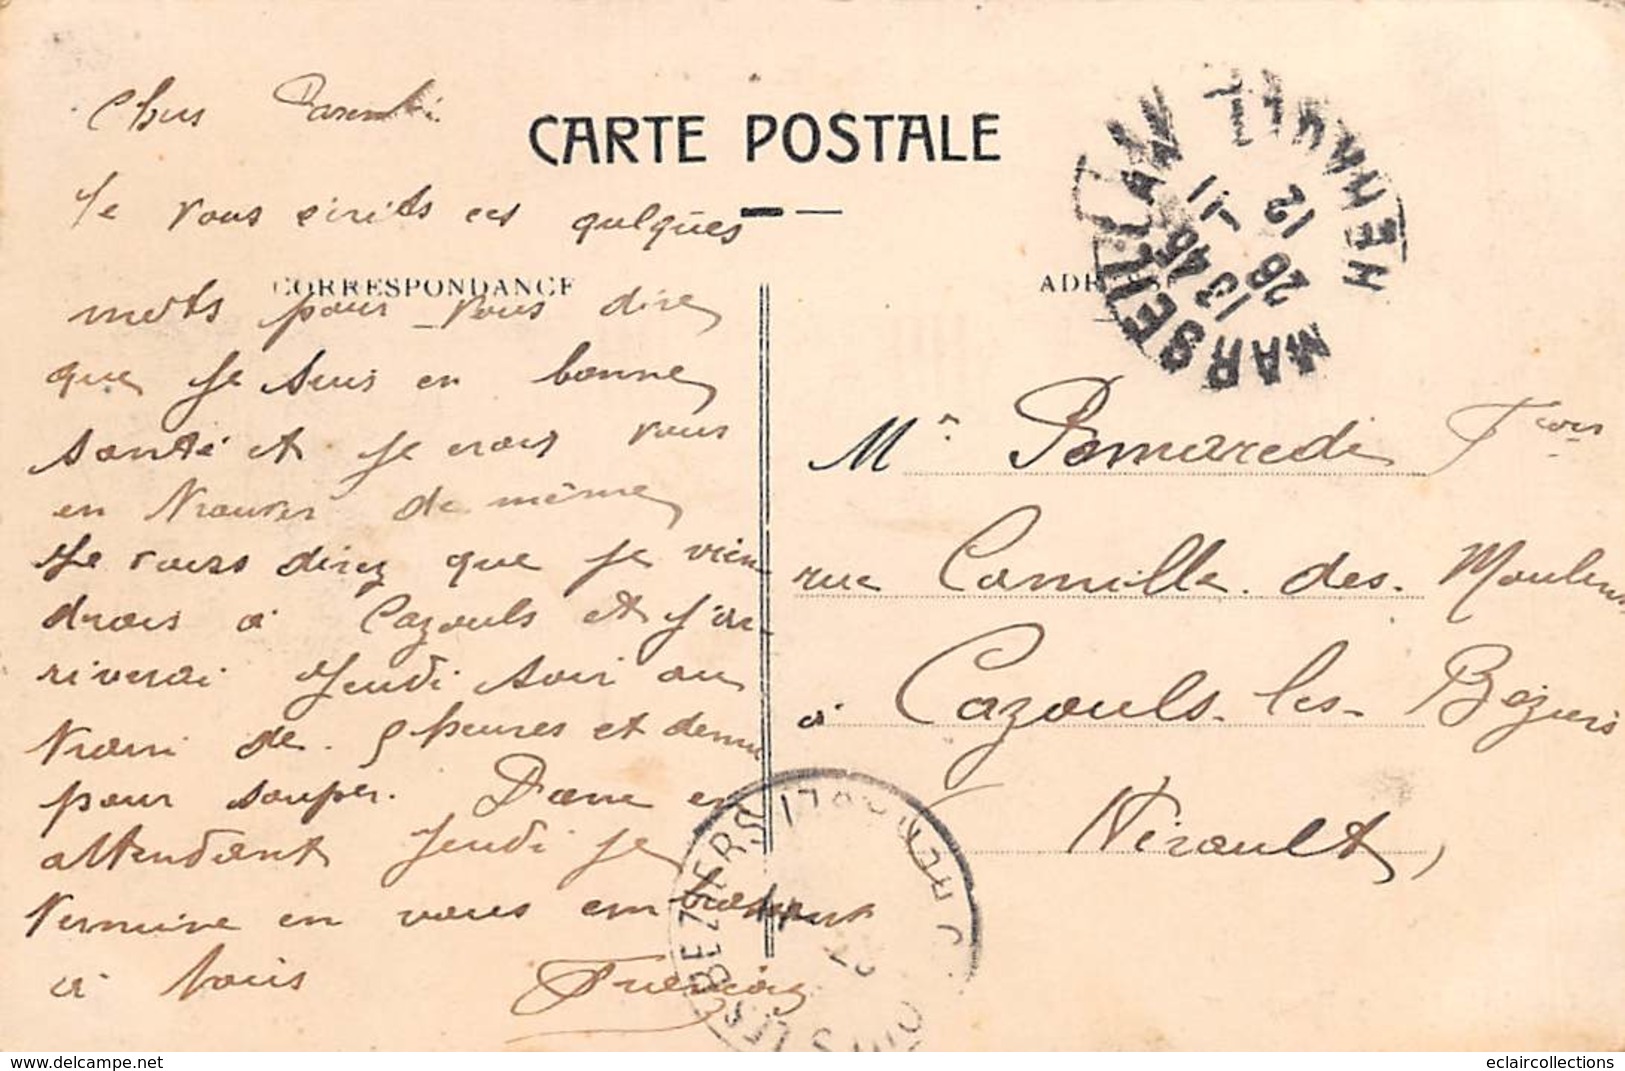 CARTE POSTALE
CORRESPONDANCE
Chers Parents
Je vous écrits ces quelques
mots pour vous dire
que je suis en bonne
santé et je crois vous
en trouver de même
Je vous direz que je vien
drais à Cazouls et j'ar-
riverai Jeudi soir au
train de 9 heures et demi
pour souper. Dans en
attendant Jeudi je
termine en vous embrassant
à tous
MARSEILLE
13 45
26 12
11
Mr Pomarede
rue Camille des Moulins
à Cazouls-les-Béziers
Hérault,
LES BEZIERS
delcampe.net
eclaircollections